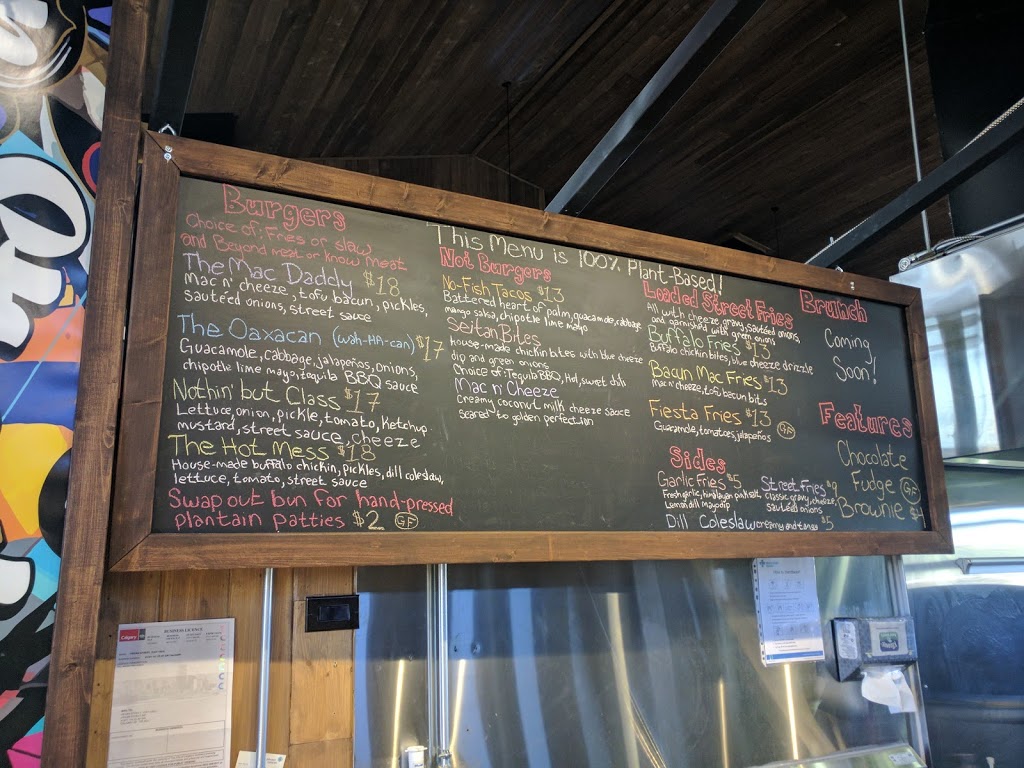 This Menu is 100% Plant-Based!
Burgers
Choice of: Fries or slaw
and Beyond meat or know meat
The Mac Daddy $18
Mac n' cheeze, tofu bacun, pickles,
sautéed onions, street sauce
The Oaxacan (wah-HA-can) $17
Guacamole, cabbage, jalapeños, onions,
chipotle lime mayo, tequila BBQ sauce
Nothin' but Class $17
Lettuce, onion, pickle, tomato, Ketchup
mustard, street sauce, cheeze
The Hot Mess $18
House-made buffalo chickin, pickles, dill coleslaw,
lettuce, tomato, street sauce
Swap out bun for hand-pressed
plantain patties $2 GF
Not Burgers
No-Fish Tacos $13
Battered heart of palm, guacamole, cabbage
mango salsa, chipotle lime mayo
Seitan Bites
house-made chickin bites with blue cheeze
dip and green onions
Choice of: Tequila BBQ, Hot, sweet chili
Mac n' Cheeze
Creamy coconut milk cheeze sauce
seared to golden perfection
Loaded Street Fries
All with cheeze, gravy, sautéed onions,
and garnished with green onions
Buffalo Fries $13
Buffalo chickin bites, blue cheeze drizzle
Bacun Mac Fries $13
Mac n' cheeze, tofu bacun bits
Fiesta Fries $13
Guacamole, tomatoes, jalapeños GF
Sides
Garlic Fries $5
Fresh garlic, himalayan pink salt,
Lemon dill mayo dip
Street Fries $9
Classic gravy, cheeze,
sautéed onions
Dill Coleslaw creamy and tangy $5
Brunch
Coming
Soon!
Features
Chocolate
Fudge GF
Brownie
Calgary
BUSINESS LICENCE